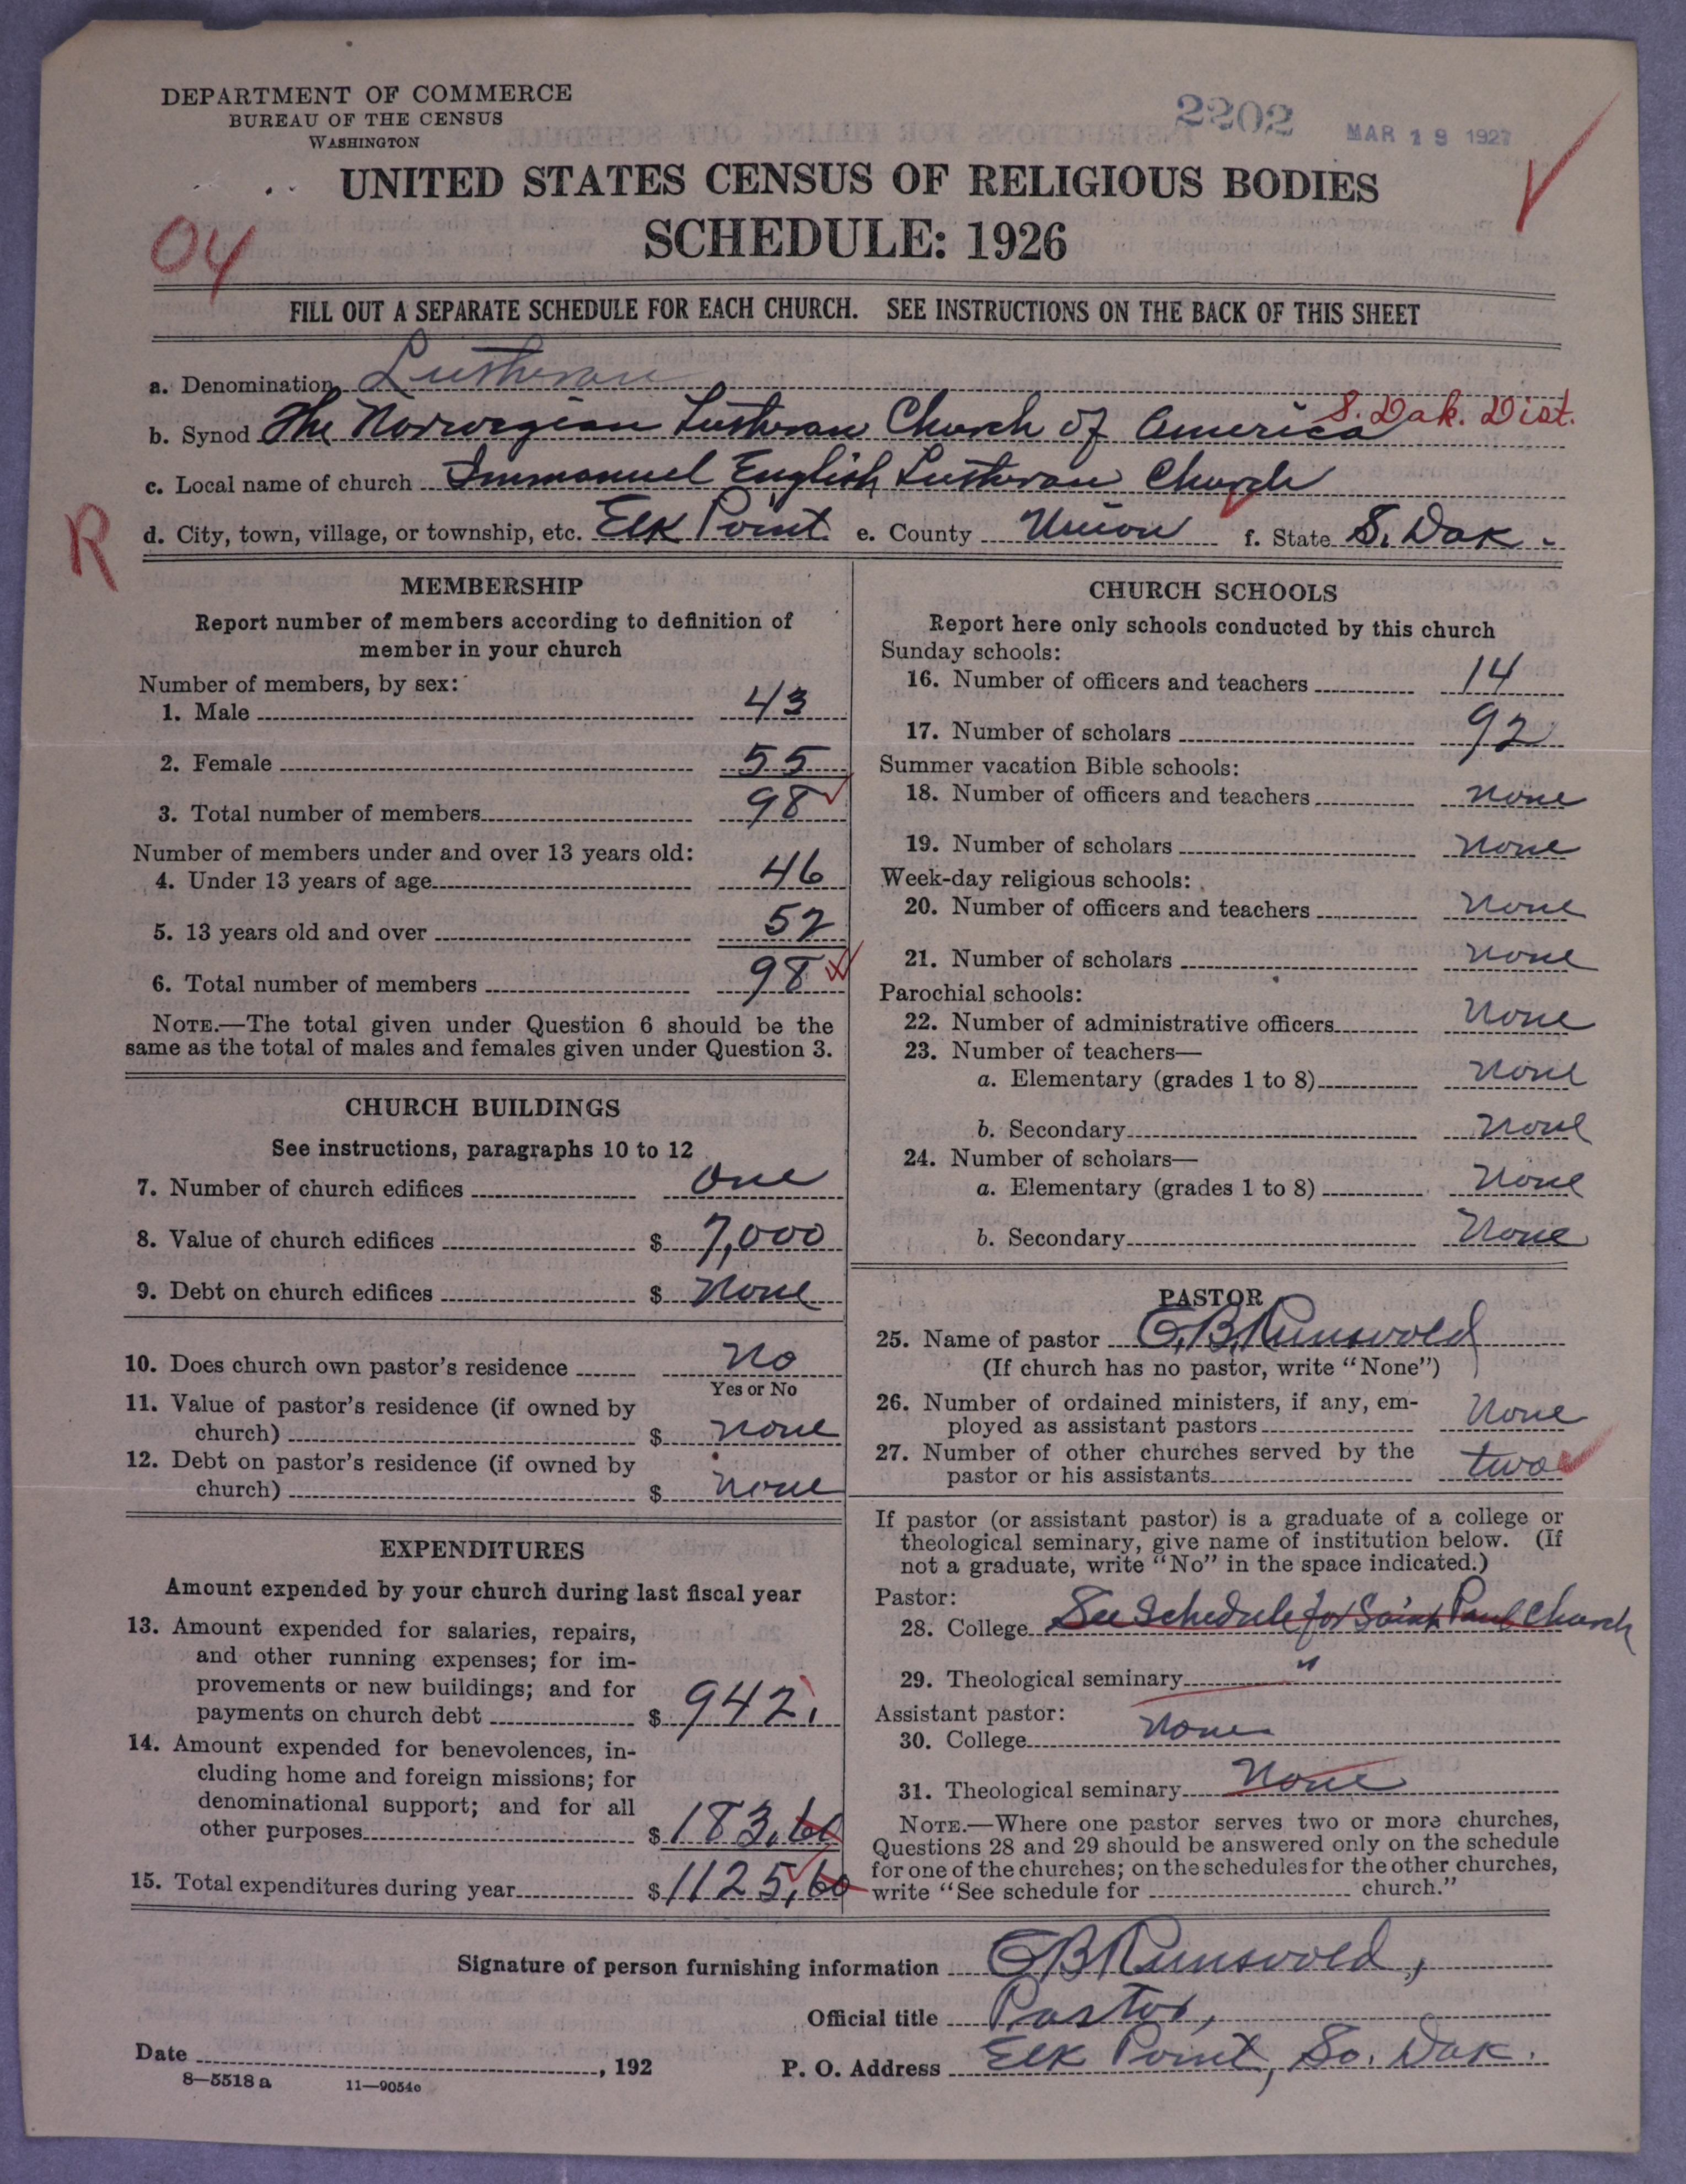 DEPARTMENT OF COMMERCE
BUREAU OF THE CENSUS
WASHINGTON
2202
MAR 19 1927
UNITED STATES CENSUS OF RELIGIOUS BODIES
SCHEDULE: 1926
04
FILL OUT A SEPARATE SCHEDULE FOR EACH CHURCH. SEE INSTRUCTIONS ON THE BACK OF THIS SHEET
a. Denomination Lutheran
b. Synod The Norwegian Lutheran Church of America S. Dak. Dist.
c. Local name of church Immanuel English Lutheran Church
R
d. City, town, village, or township, etc. Elk Point e. County Union f. State S. Dak.
MEMBERSHIP
Report number of members according to definition of
member in your church
Number of members, by sex:
1. Male 43
2. Female 55
3. Total number of members 98
Number of members under and over 13 years old:
4. Under 13 years of age 46
5. 13 years old and over 52
6. Total number of members 98
NOTE.—The total given under Question 6 should be the
same as the total of males and females given under Question 3.
CHURCH BUILDINGS
See instructions, paragraphs 10 to 12
7. Number of church edifices One
8. Value of church edifices $ 7,000
9. Debt on church edifices $ None
10. Does church own pastor's residence No
Yes or No
11. Value of pastor's residence (if owned by
church) $ none
12. Debt on pastor's residence (if owned by
church) $ none
EXPENDITURES
Amount expended by your church during last fiscal year
13. Amount expended for salaries, repairs,
and other running expenses; for im-
provements or new buildings; and for
payments on church debt $ 942.
14. Amount expended for benevolences, in-
cluding home and foreign missions; for
denominational support; and for all
other purposes $ 183.60
15. Total expenditures during year $ 1125.60
CHURCH SCHOOLS
Report here only schools conducted by this church
Sunday schools:
16. Number of officers and teachers 14
17. Number of scholars 92
Summer vacation Bible schools:
18. Number of officers and teachers none
19. Number of scholars None
Week-day religious schools:
20. Number of officers and teachers None
21. Number of scholars none
Parochial schools:
22. Number of administrative officers None
23. Number of teachers—
a. Elementary (grades 1 to 8) none
b. Secondary none
24. Number of scholars—
a. Elementary (grades 1 to 8) None
b. Secondary None
PASTOR
25. Name of pastor O.B. Runsvold
(If church has no pastor, write "None")
26. Number of ordained ministers, if any, em-
ployed as assistant pastors None
27. Number of other churches served by the
pastor or his assistants two
If pastor (or assistant pastor) is a graduate of a college or
theological seminary, give name of institution below. (If
not a graduate, write "No" in the space indicated.)
Pastor:
28. College See Schedule for Saint Paul Church
29. Theological seminary "
Assistant pastor:
30. College None
31. Theological seminary None
NOTE.—Where one pastor serves two or more churches,
Questions 28 and 29 should be answered only on the schedule
for one of the churches; on the schedules for the other churches,
write "See schedule for church."
Signature of person furnishing information O B Runsvold,
Official title Pastor,
Date , 192 P. O. Address Elk Point, So. Dak.
8—5518 a 11—9054c